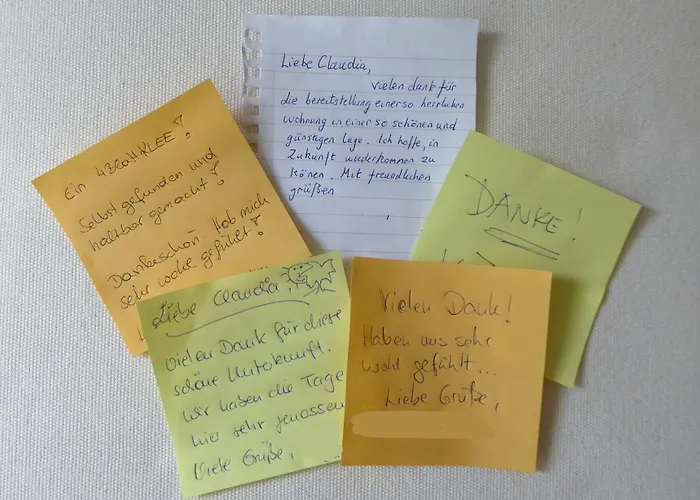 Liebe Claudia,
vielen dank für
die bereitstellung einer so herrlichen
wohnung in einer so schönen und
günstigen Lage. Ich hoffe, in
Zukunft wiederkommen zu
könen. Mit freundlichen
grüßen
Ein 4BLATTKLEE!
Selbst gefunden und
haltbar gemacht!
Dankeschön. Hab mich
sehr wohl gefühlt!
DANKE!
Liebe Claudia,
vielen Dank für diese
schöne Unterkunft.
Wir haben die Tage
hier sehr genossen
Viele Grüße,
Vielen Dank!
Haben uns sehr
wohl gefühlt...
Liebe Grüße,